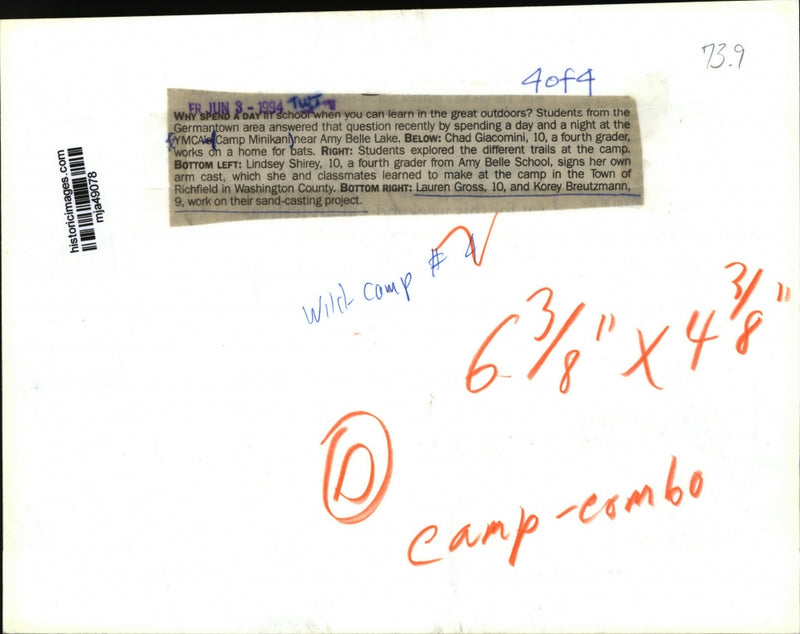 73.9
4 of 4
FR JUN 3 - 1994 TWJ
WHY SPEND A DAY in school when you can learn in the great outdoors? Students from the
Germantown area answered that question recently by spending a day and a night at the
YMCA's (Camp Minikani) near Amy Belle Lake. BELOW: Chad Giacomini, 10, a fourth grader,
works on a home for bats. RIGHT: Students explored the different trails at the camp.
BOTTOM LEFT: Lindsey Shirey, 10, a fourth grader from Amy Belle School, signs her own
arm cast, which she and classmates learned to make at the camp in the Town of
Richfield in Washington County. BOTTOM RIGHT: Lauren Gross, 10, and Korey Breutzmann,
9, work on their sand-casting project.
historicimages.com
mja49078
Wild camp # 4
6 3/8" X 4 3/8"
D
camp-combo